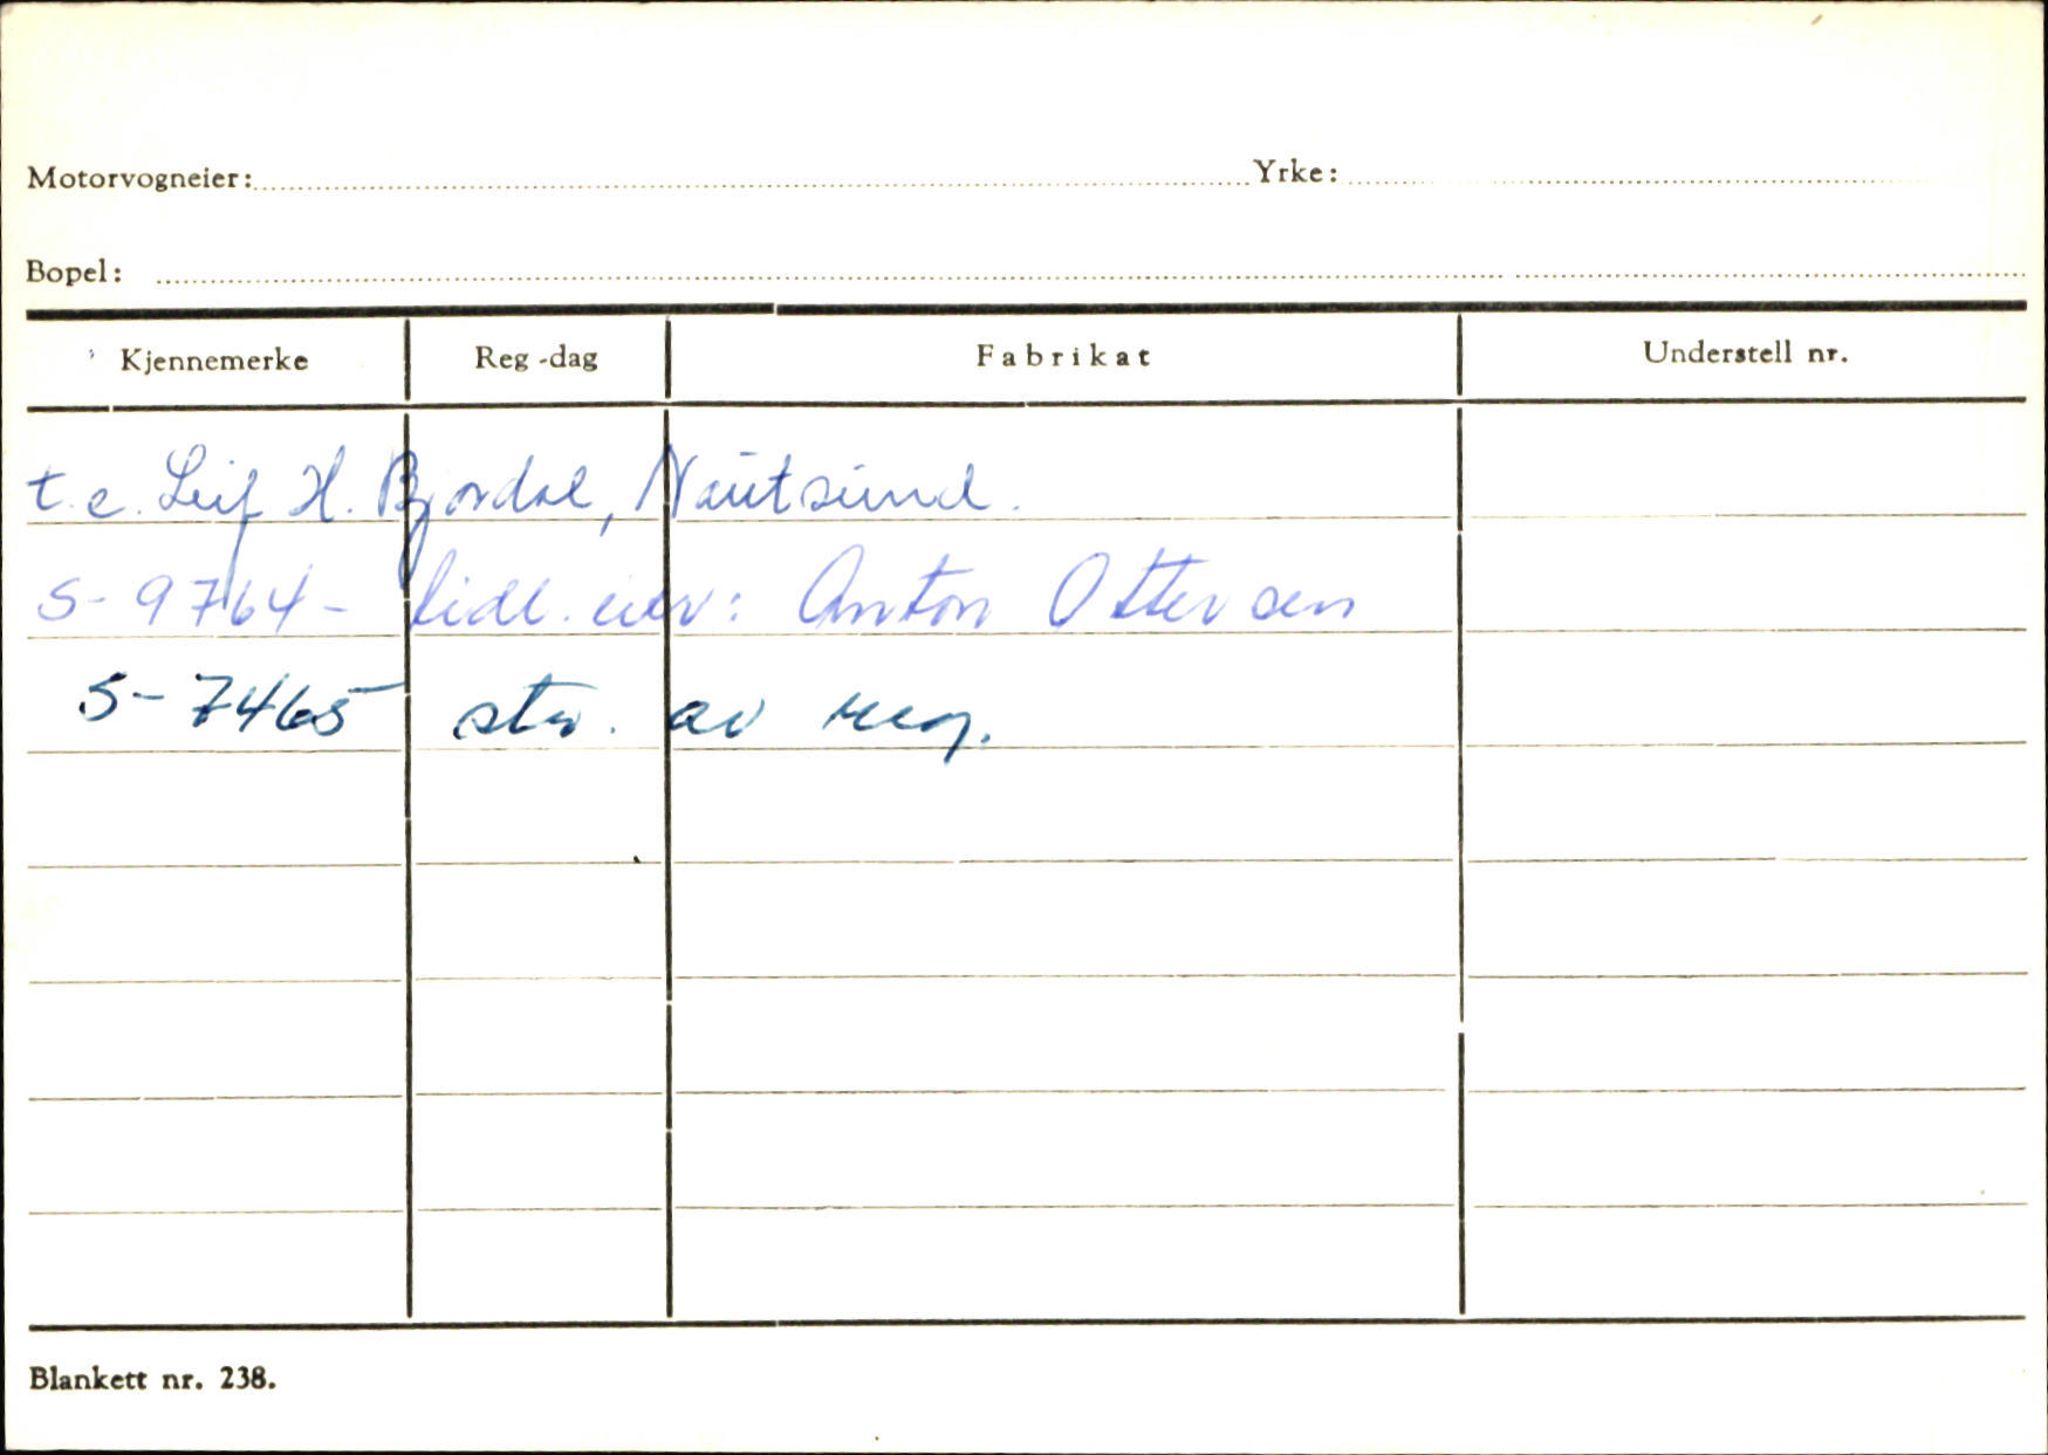 Motorvogneier: Yrke:
Bopel:
Kjennemerke Reg-dag Fabrikat Understell nr.
t.e. Leif H. Bjordal, Nautsund.
S-9764- tidl. eier: Anton Ottersen
S-7465 str. av reg.
Blankett nr. 238.